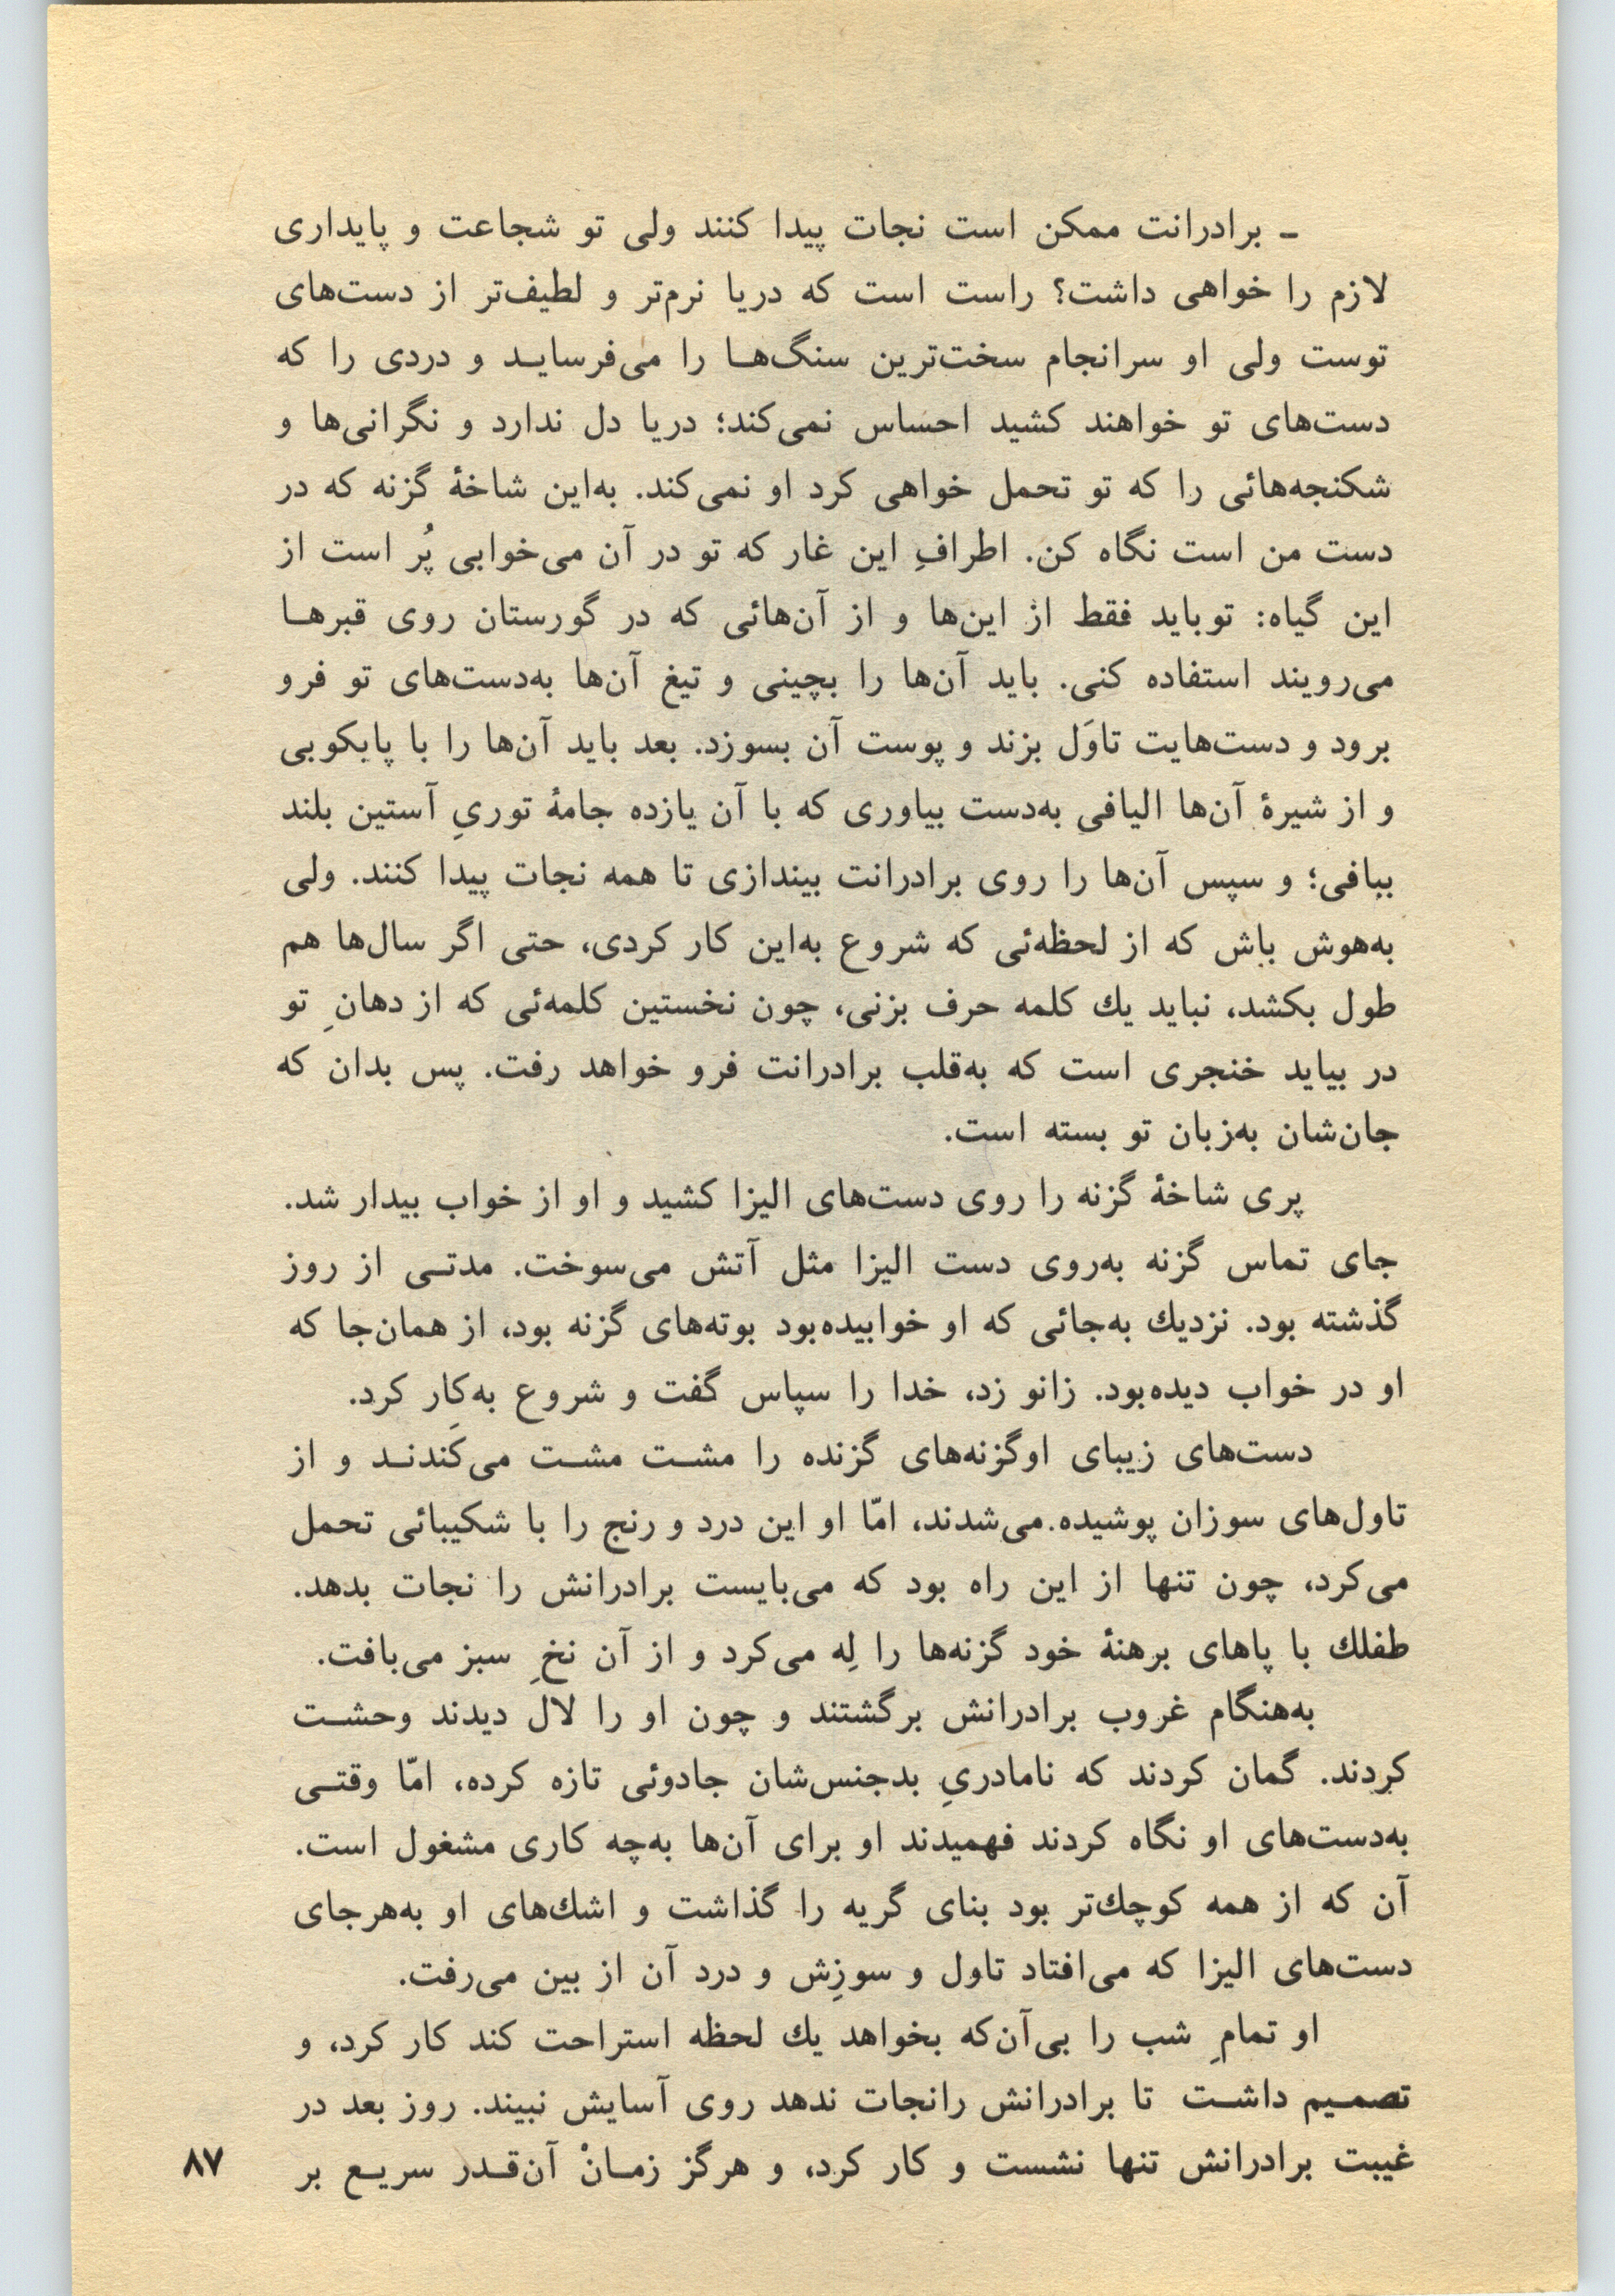 ـ برادرانت ممکن است نجات پیدا کنند ولی تو شجاعت و پایداری
لازم را خواهی داشت؟ راست است که دریا نرم‌تر و لطیف‌تر از دست‌های
توست ولی او سرانجام سخت‌ترین سنگ‌هـا را می‌فرسایـد و دردی را که
دست‌های تو خواهند کشید احساس نمی‌کند؛ دریا دل ندارد و نگرانی‌ها و
شکنجه‌هائی را که تو تحمل خواهی کرد او نمی‌کند. به‌این شاخهٔ گزنه که در
دست من است نگاه کن. اطرافِ این غار که تو در آن می‌خوابی پُر است از
این گیاه: تو باید فقط از این‌ها و از آن‌هائی که در گورستان روی قبرهـا
می‌رویند استفاده کنی. باید آن‌ها را بچینی و تیغ آن‌ها به‌دست‌های تو فرو
برود و دست‌هایت تاوَل بزند و پوست آن بسوزد. بعد باید آن‌ها را با پابکوبی
و از شیرهٔ آن‌ها الیافی به‌دست بیاوری که با آن یازده جامهٔ توریِ آستین بلند
ببافی؛ و سپس آن‌ها را روی برادرانت بیندازی تا همه نجات پیدا کنند. ولی
به‌هوش باش که از لحظه‌ئی که شروع به‌این کار کردی، حتی اگر سال‌ها هم
طول بکشد، نباید یك کلمه حرف بزنی، چون نخستین کلمه‌ئی که از دهانِ تو
در بیاید خنجری است که به‌قلب برادرانت فرو خواهد رفت. پس بدان که
جان‌شان به‌زبان تو بسته است.
پری شاخهٔ گزنه را روی دست‌های الیزا کشید و او از خواب بیدار شد.
جای تماس گزنه به‌روی دست الیزا مثل آتش می‌سوخت. مدتـی از روز
گذشته بود. نزدیك به‌جائی که او خوابیده‌بود بوته‌های گزنه بود، از همان‌جا که
او در خواب دیده‌بود. زانو زد، خدا را سپاس گفت و شروع به‌کار کرد.
دست‌های زیبای اوگزنه‌های گزنده را مشـت مشـت می‌کَندنـد و از
تاول‌های سوزان پوشیده می‌شدند، امّا او این درد و رنج را با شکیبائی تحمل
می‌کرد، چون تنها از این راه بود که می‌بایست برادرانش را نجات بدهد.
طفلك با پاهای برهنهٔ خود گزنه‌ها را لِه می‌کرد و از آن نخِ سبز می‌بافت.
به‌هنگام غروب برادرانش برگشتند و چون او را لال دیدند وحشـت
کردند. گمان کردند که نامادریِ بدجنس‌شان جادوئی تازه کرده، امّا وقتـی
به‌دست‌های او نگاه کردند فهمیدند او برای آن‌ها به‌چه کاری مشغول است.
آن که از همه کوچك‌تر بود بنای گریه را گذاشت و اشك‌های او به‌هرجای
دست‌های الیزا که می‌افتاد تاول و سوزِش و درد آن از بین می‌رفت.
او تمامِ شب را بی‌آن‌که بخواهد یك لحظه استراحت کند کار کرد، و
تصمـیم داشـت تا برادرانش رانجات ندهد روی آسایش نبیند. روز بعد در
غیبت برادرانش تنها نشست و کار کرد، و هرگز زمـانْ آن‌قـدر سریـع بر
۸۷